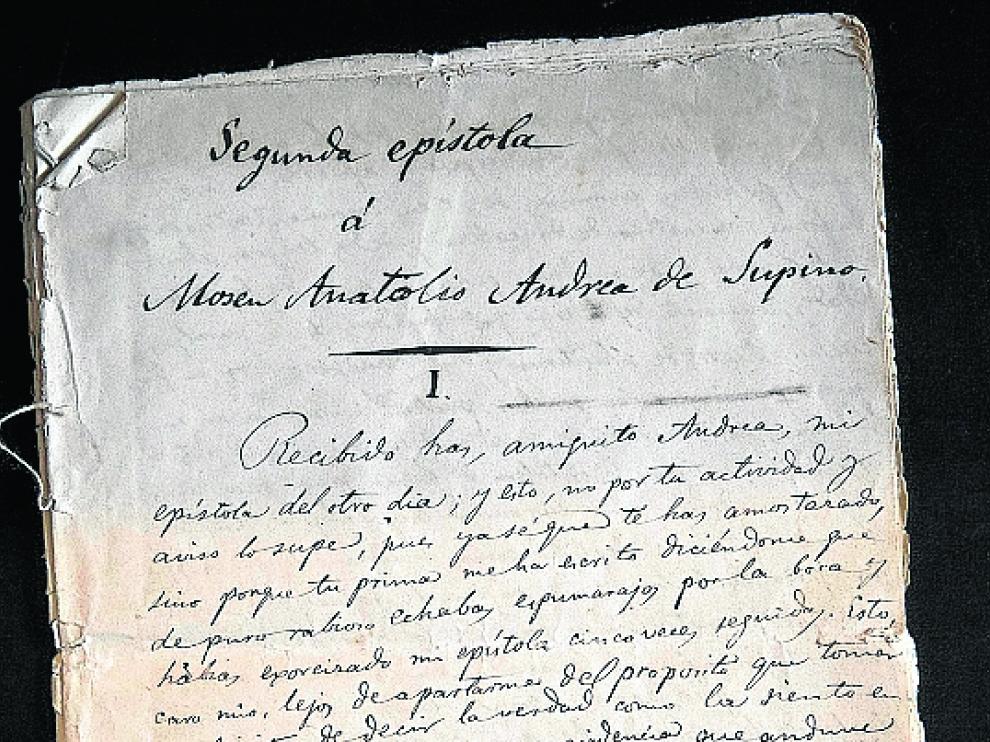 Segunda epístola
á
Mosen Anatolio Andrea de Supino.
I.
Recibido has, amiguito Andrea, mi
epístola del otro dia; y esto, no por tu actividad y
aviso lo supe, pues ya sé que te has amostazado,
sino porque tu prima me ha escrito diciéndome que
de puro rabioso echabas espumarajos por la boca y
habias exorcizado mi epístola cinco veces seguidas. Esto,
caro mio, lejos de apartarme del proposito que tomé
de decir la verdad como la siento en
que anduve